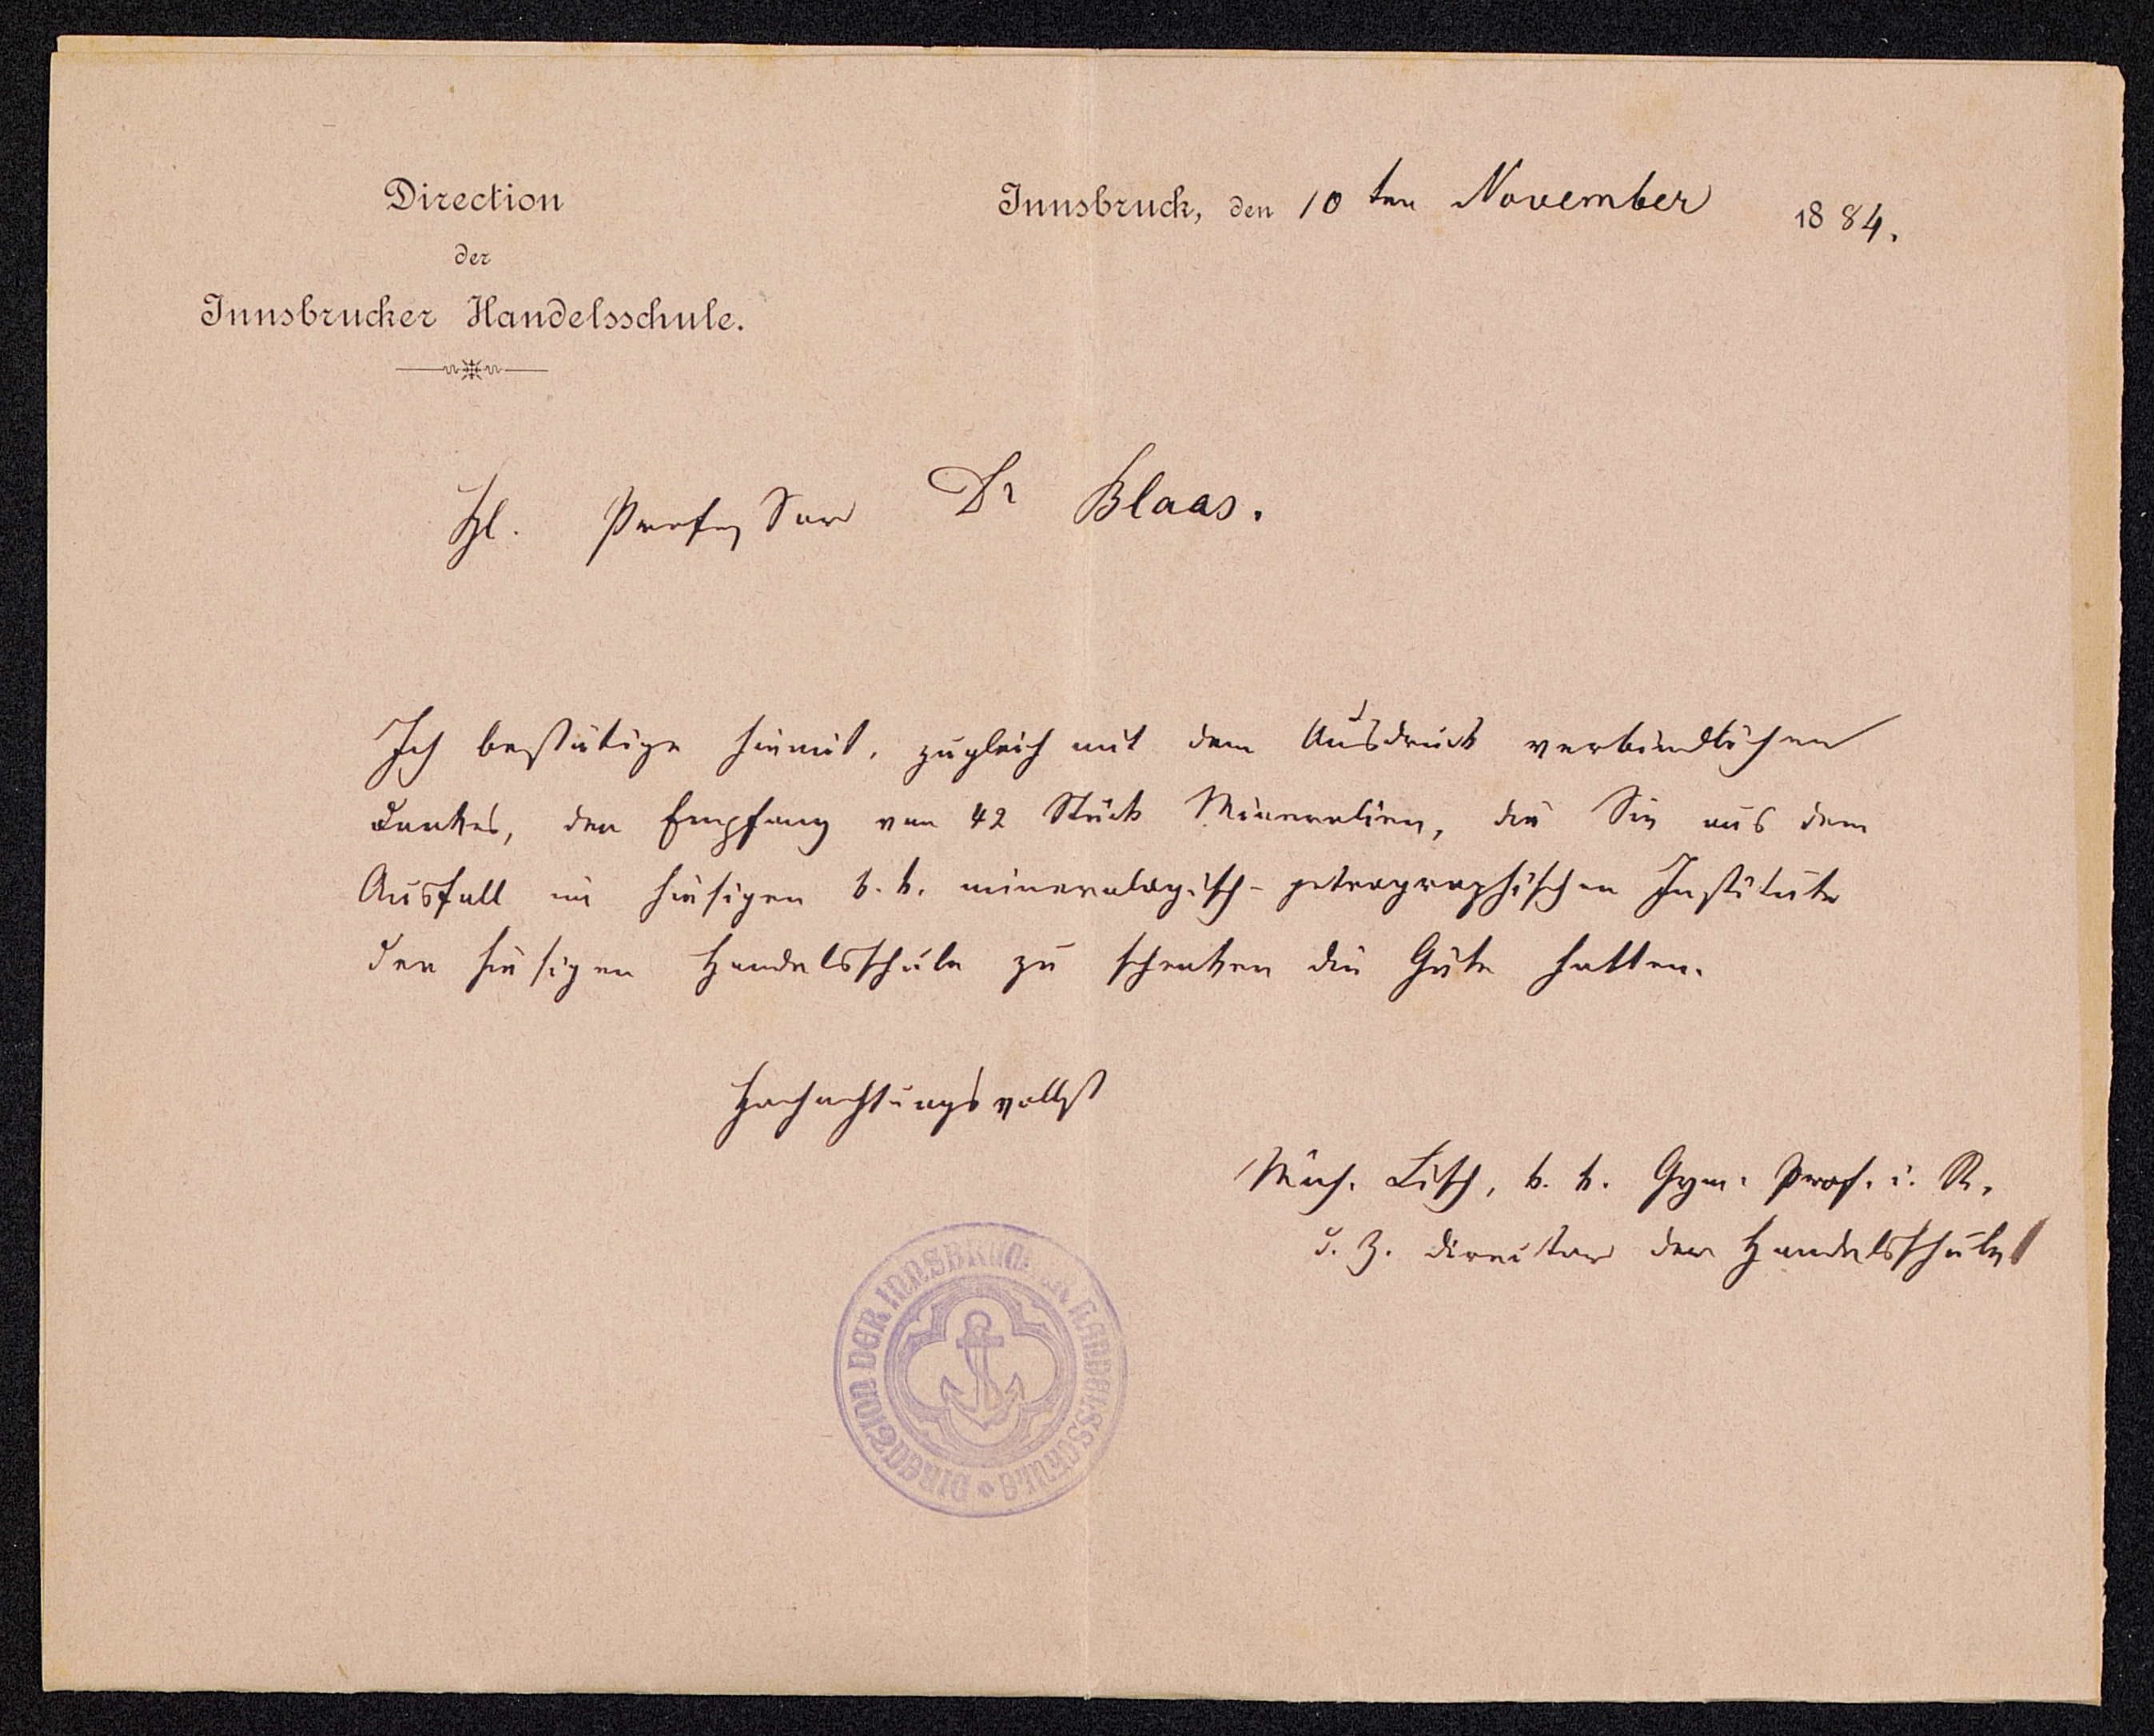 Direction
der
Innsbrucker Handelsschule.
Innsbruck, den 10ten November 1884.
Hl. Professor Dr Blaas.
Ich bestätige hiemit, zugleich mit dem Ausdruck verbindlichen
Dankes, den Empfang von 42 Stück Mineralien, die Sie aus dem
Ausfall im hiesigen k. k. mineralogisch-petrographischen Institute
der hiesigen Handelsschule zu schenken die Güte hatten.
Hochachtungsvollst
Mich. Lisch, k. k. Gym. Prof. i. R.
d. Z. Director der Handelsschule
DIRECZION DER INNSBRUCKER HANDELSSCHULE